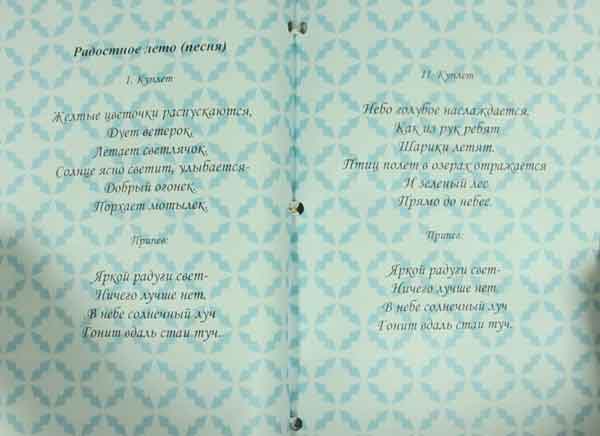 Радостное лето (песня)
I. Куплет
Желтые цветочки распускаются,
Дует ветерок,
Летает светлячок.
Солнце ясно светит, улыбается-
Добрый огонек.
Порхает мотылек.
Припев:
Яркой радуги свет-
Ничего лучше нет.
В небе солнечный луч
Гонит вдаль стаи туч.
II. Куплет
Небо голубое наслаждается,
Как из рук ребят
Шарики летят.
Птиц полет в озерах отражается
И зеленый лес
Прямо до небес.
Припев:
Яркой радуги свет-
Ничего лучше нет.
В небе солнечный луч
Гонит вдаль стаи туч.